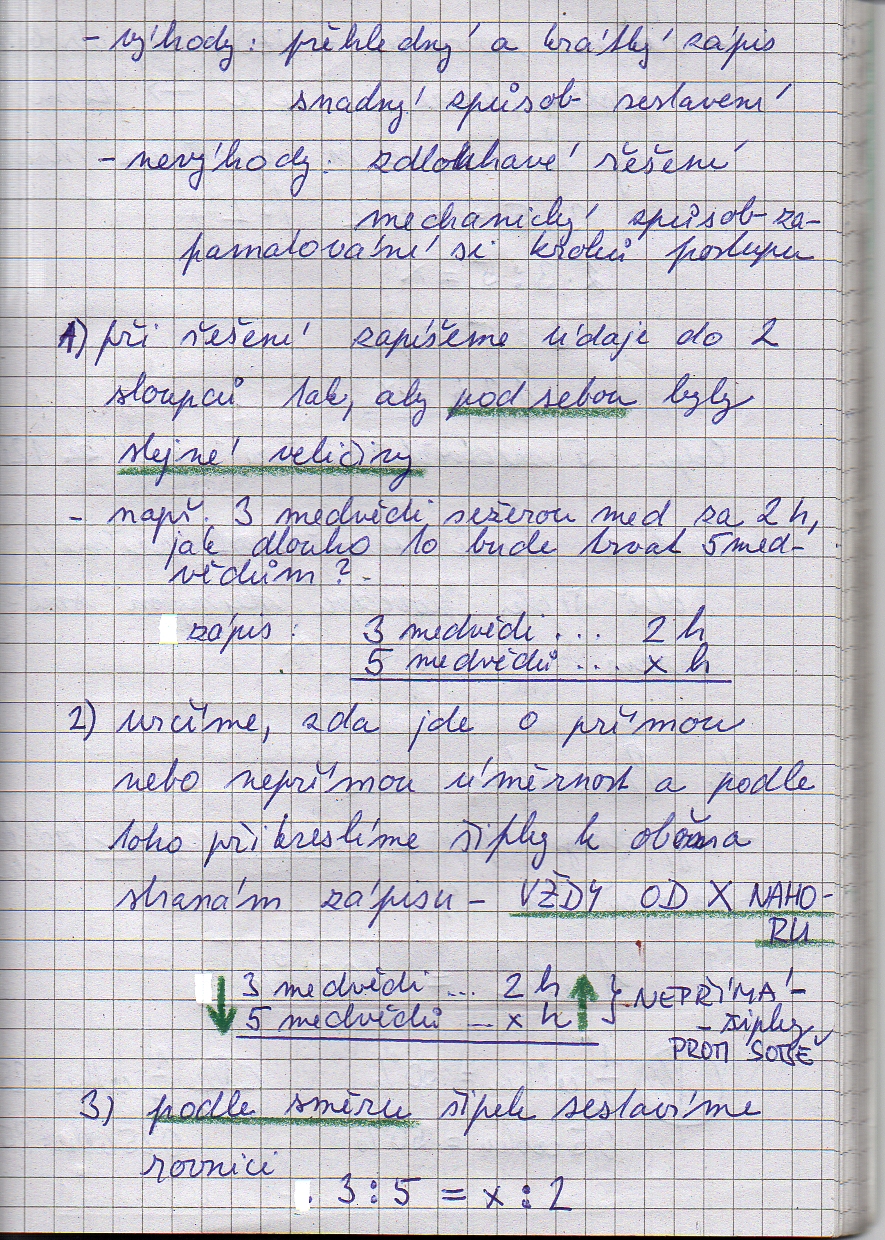 - výhody: přehledný a krátký zápis
snadný způsob sestavení
- nevýhody: zdlouhavé řešení
mechanický způsob - za-
pamatování si kroků postupu
1) při řešení zapíšeme údaje do 2
sloupců tak, aby pod sebou byly
stejné veličiny
- např. 3 medvědi sežerou med za 2 h,
jak dlouho to bude trvat 5 med-
vědům?
zápis: 3 medvědi ... 2 h
5 medvědů ... x h
2) určíme, zda jde o přímou
nebo nepřímou úměrnost a podle
toho přikreslíme šipky k oběma
stranám zápisu - VŽDY OD X NAHO-
RU
↓ 3 medvědi ... 2 h ↑ } NEPŘÍMÁ -
5 medvědů ... x h - šipky
PROTI SOBĚ
3) podle směru šipek sestavíme
rovnici
3 : 5 = x : 2